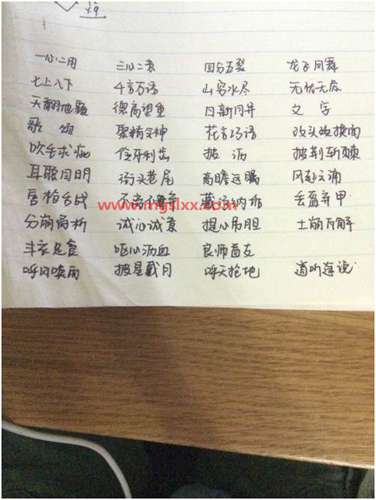 一心二用 三心二意 四分五裂 龙飞凤舞
七上八下 千言万语 山穷水尽 无忧无虑
天翻地覆 德高望重 日新月异 文字
歌颂 聚精会神 花言巧语 改头换面
吹毛求疵 伶牙利齿 披沥 披荆斩棘
耳聪目明 街头巷尾 高瞻远瞩
唇枪舌战 藏 丢盔弃甲
www.mgslxx.com
分崩离析 诚心诚意 提心吊胆 土崩瓦解
丰衣足食 呕心沥血 良师益友
呼风唤雨 披星戴月 呼天抢地 道听途说